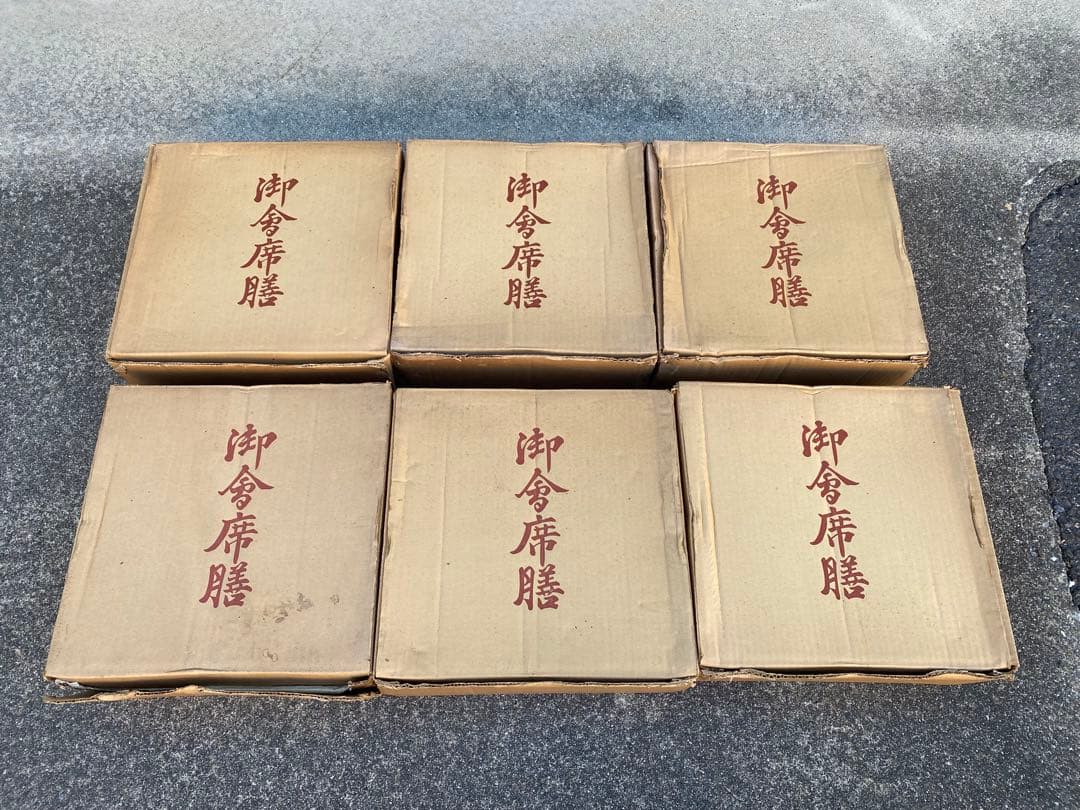 御會席膳
御會席膳
御會席膳
御會席膳
御會席膳
御會席膳